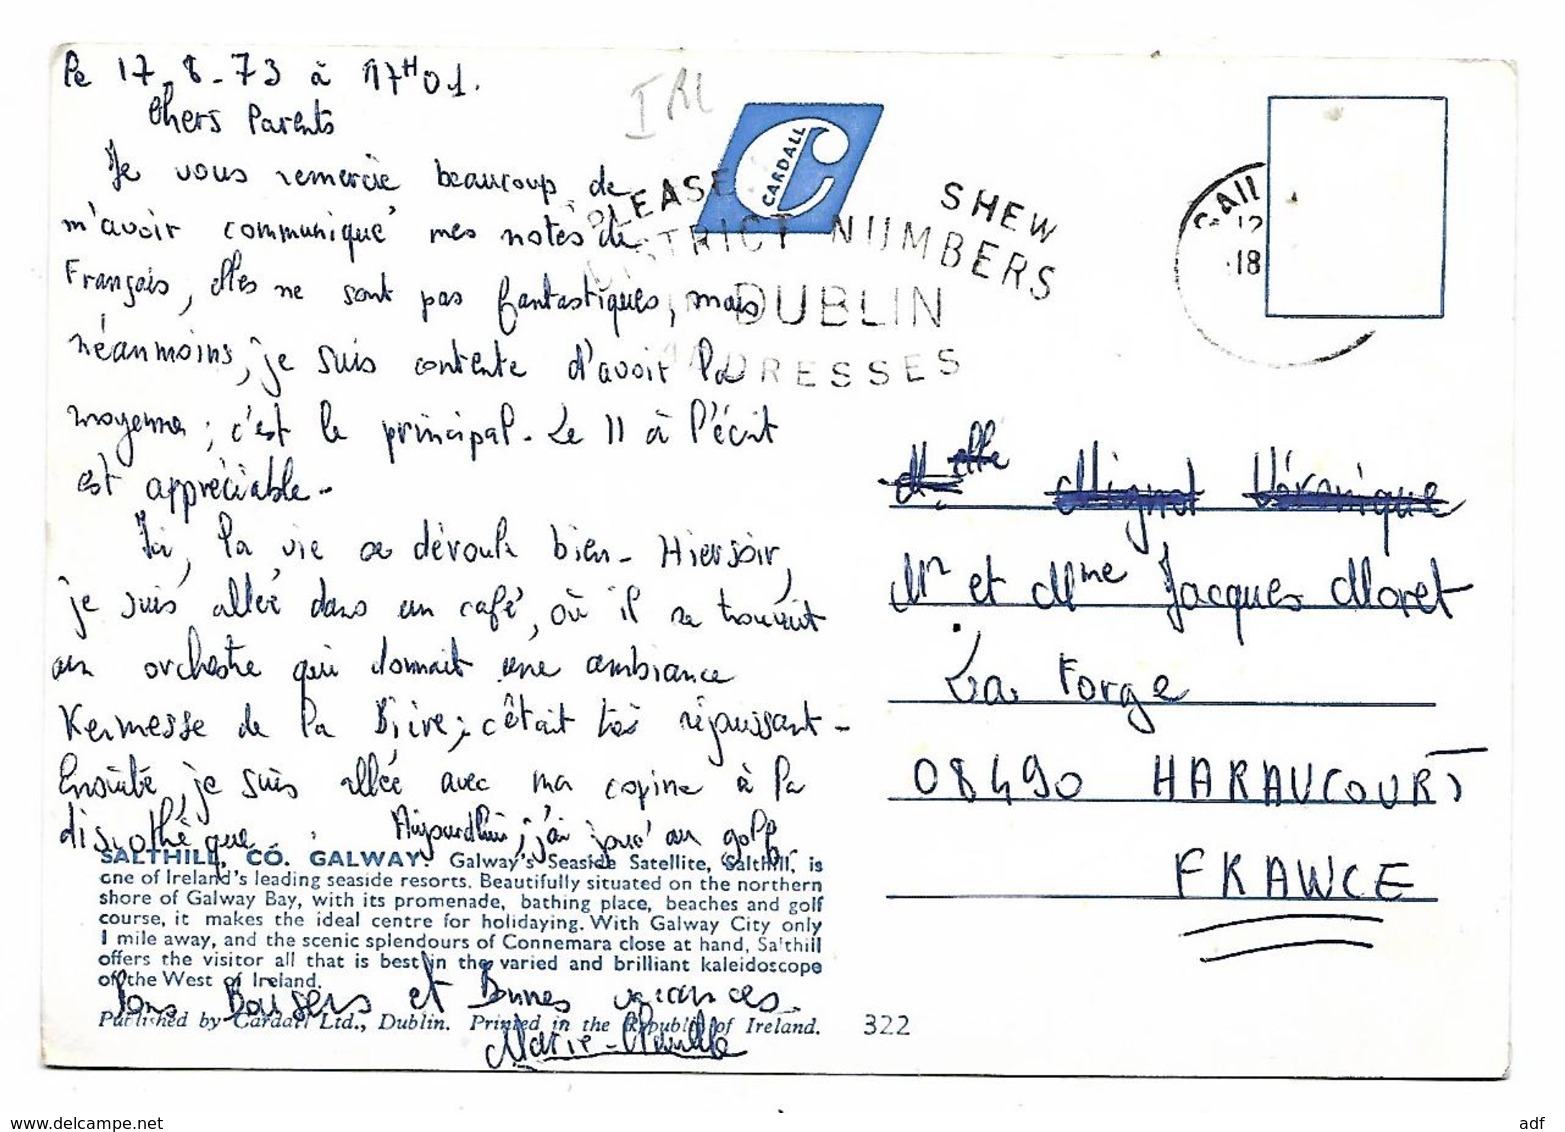 Le 17-8-73 à 17H01.
Chers Parents
Je vous remercie beaucoup de
m'avoir communiqué mes notes de
Français, elles ne sont pas fantastiques, mais
néanmoins, je suis contente d'avoir la
moyenne; c'est le principal. Le 11 à l'écrit
est appréciable.
Ici, la vie se déroule bien. Hier soir,
je suis allée dans un café, où il se trouvait
un orchestre qui donnait une ambiance
Kermesse de la Bière; c'était très réjouissant.
Ensuite je suis allée avec ma copine à la
discothèque. Aujourd'hui, j'ai joué au golf.
SALTHILL, CO. GALWAY. Galway's Seaside Satellite, Salthill, is
one of Ireland's leading seaside resorts. Beautifully situated on the northern
shore of Galway Bay, with its promenade, bathing place, beaches and golf
course, it makes the ideal centre for holidaying. With Galway City only
1 mile away, and the scenic splendours of Connemara close at hand, Salthill
offers the visitor all that is best in the varied and brilliant kaleidoscope
of the West of Ireland.
Bons Baisers et Bonnes vacances.
Published by Cardall Ltd., Dublin. Printed in the Republic of Ireland.
322
Marie-Claude
IRL
CARDALL
PLEASE SHEW
DISTRICT NUMBERS
DUBLIN
ADDRESSES
GAILL
12
18
Melle Mignot Véronique
Mr et Mme Jacques Moret
La Forge
08490 HARAUCOURT
FRANCE
www.delcampe.net
adf